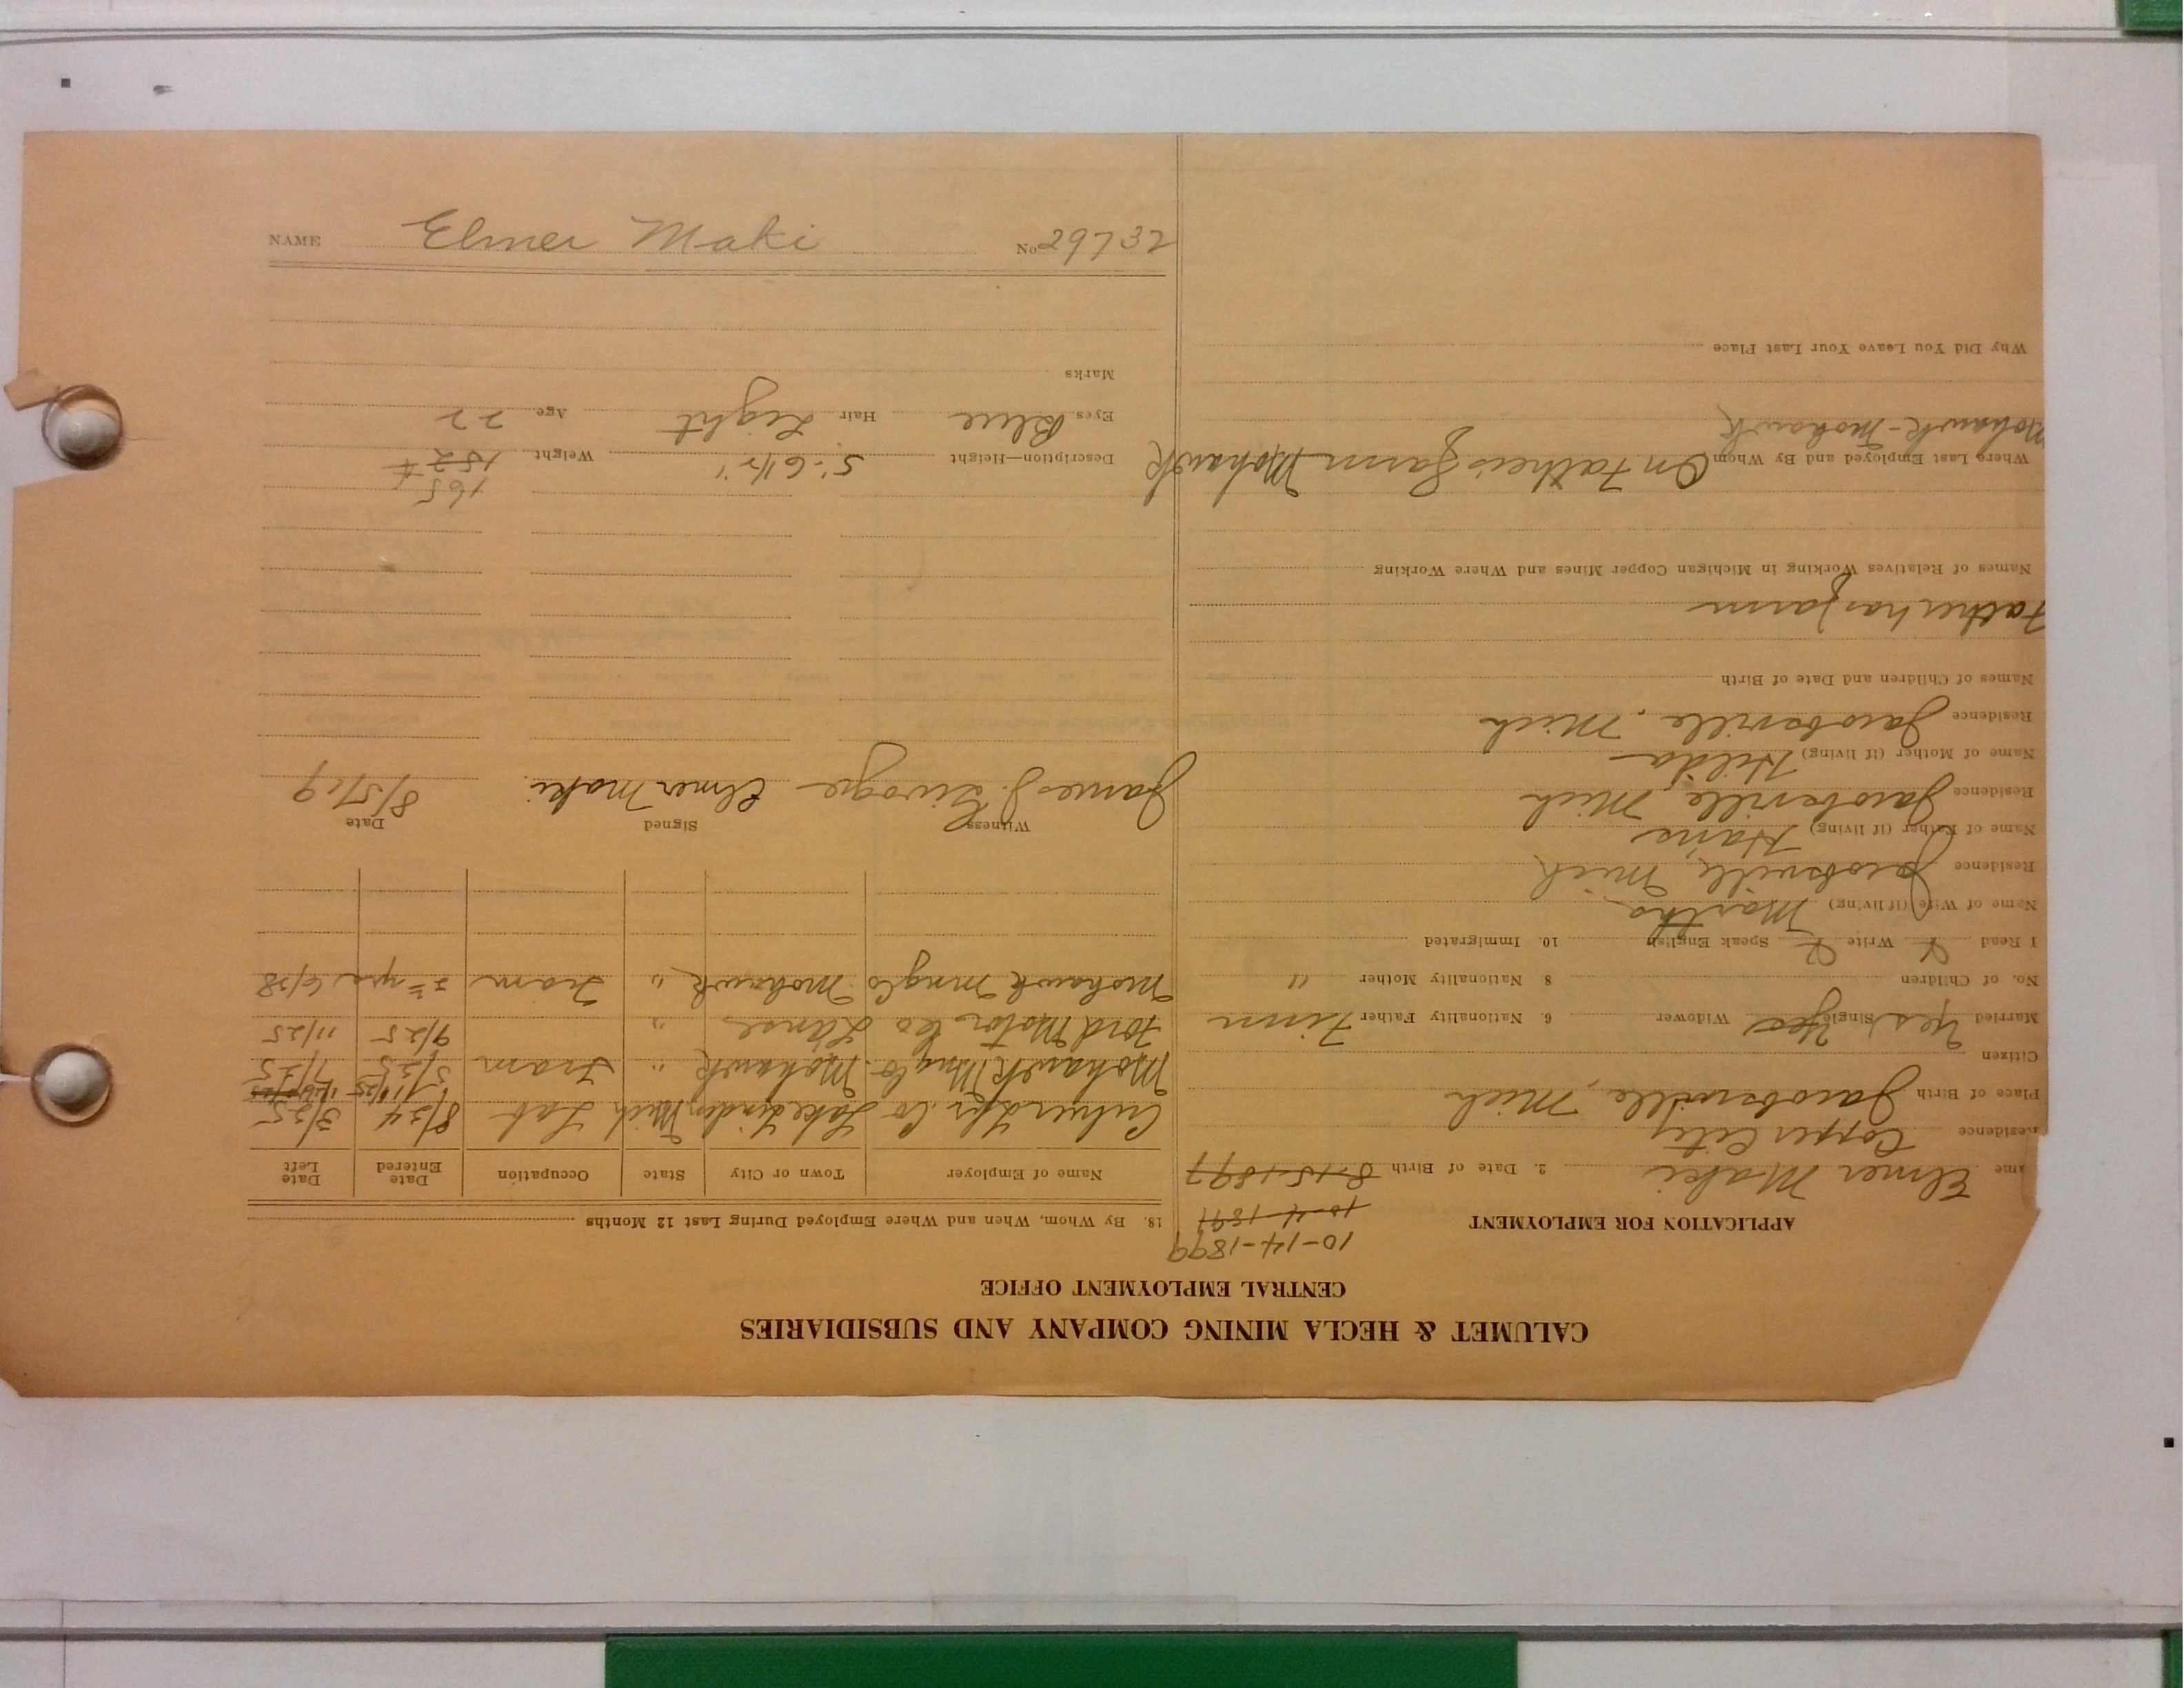 CALUMET & HECLA MINING COMPANY AND SUBSIDIARIES
CENTRAL EMPLOYMENT OFFICE
APPLICATION FOR EMPLOYMENT
10-14-1899
10-4-1897
ame Elmer Maki 2. Date of Birth 8-15-1897
Residence Copper City
Place of Birth Jacobsville, Mich
Citizen
Married Yes Single Yes Widower 6. Nationality Father Finn
No. of Children 8 Nationality Mother "
I Read Write Speak English 10. Immigrated
Name of Wife (if living) Martha
Residence Jacobsville, Mich
Name of Father (if living) Hans
Residence Jacobsville, Mich
Name of Mother (if living) Hilda
Residence Jacobsville, Mich
Names of Children and Date of Birth
Father has farm
Names of Relatives Working in Michigan Copper Mines and Where Working
Where Last Employed and By Whom On Fathers farm Mohawk
Mohawk - Mohawk
Why Did You Leave Your Last Place
18. By Whom, When and Where Employed During Last 12 Months
Name of Employer Town or City State Occupation Date Entered Date Left
Culver Lbr. Co Lake Linden Mich Lab 8/24 3/25
Mohawk Mng Co. Mohawk " Tram 5/25 7/25
Ford Motor Co Lanse " 9/25 11/25
Mohawk Mng Co Mohawk " Tram yrs 6/28
Witness Signed Date
James J. Elmer Maki
165
Description—Height 5' 6 1/2" Weight 152 #
Eyes Blue Hair Light Age 22
Marks
NAME Elmer Maki No 29732